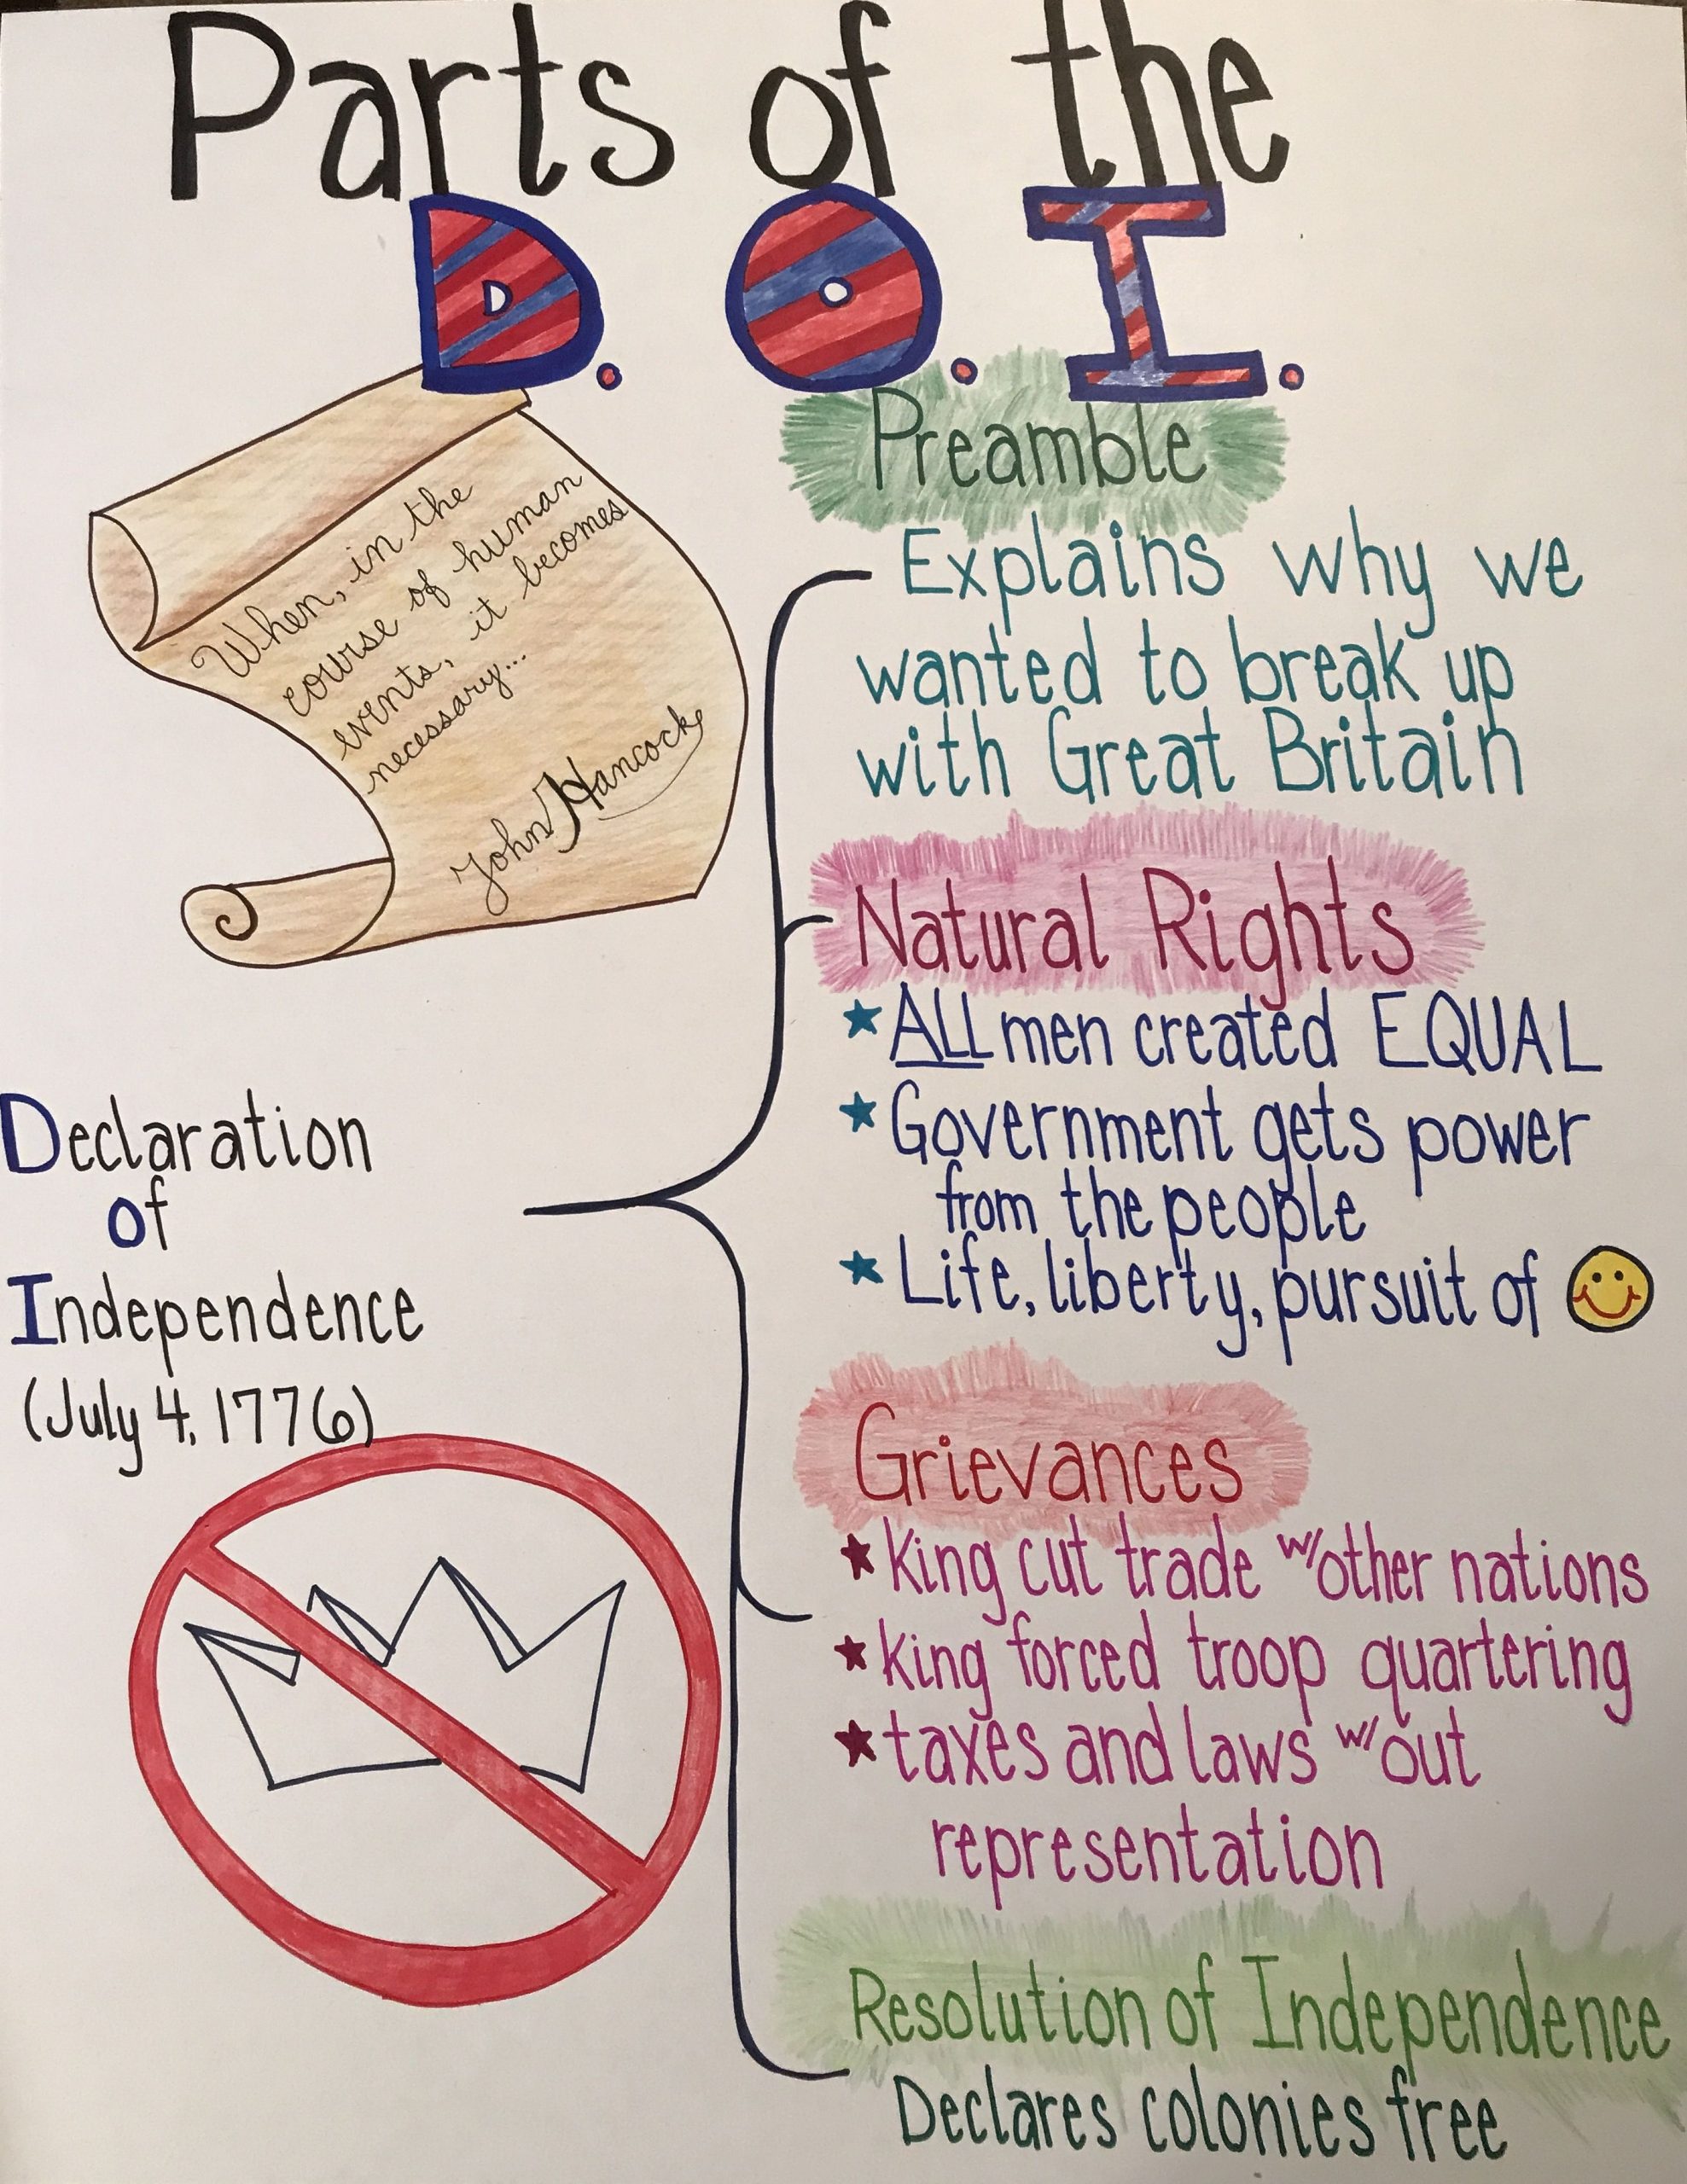 Parts of the
D. O. I.
When, in the
course of human
events, it becomes
necessary...
John Hancock
Declaration
of
Independence
(July 4, 1776)
Preamble
Explains why we
wanted to break up
with Great Britain
Natural Rights
ALL men created EQUAL
Government gets power
from the people
Life, liberty, pursuit of
Grievances
King cut trade w/other nations
King forced troop quartering
taxes and laws w/out
representation
Resolution of Independence
Declares colonies free